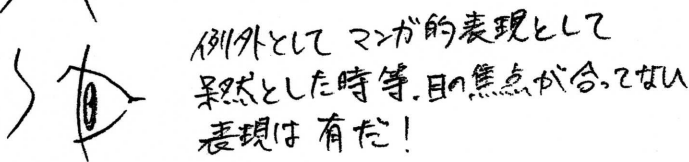 例外として マンガ的表現として
呆然とした時等、目の焦点が合ってない
表現は 有だ!